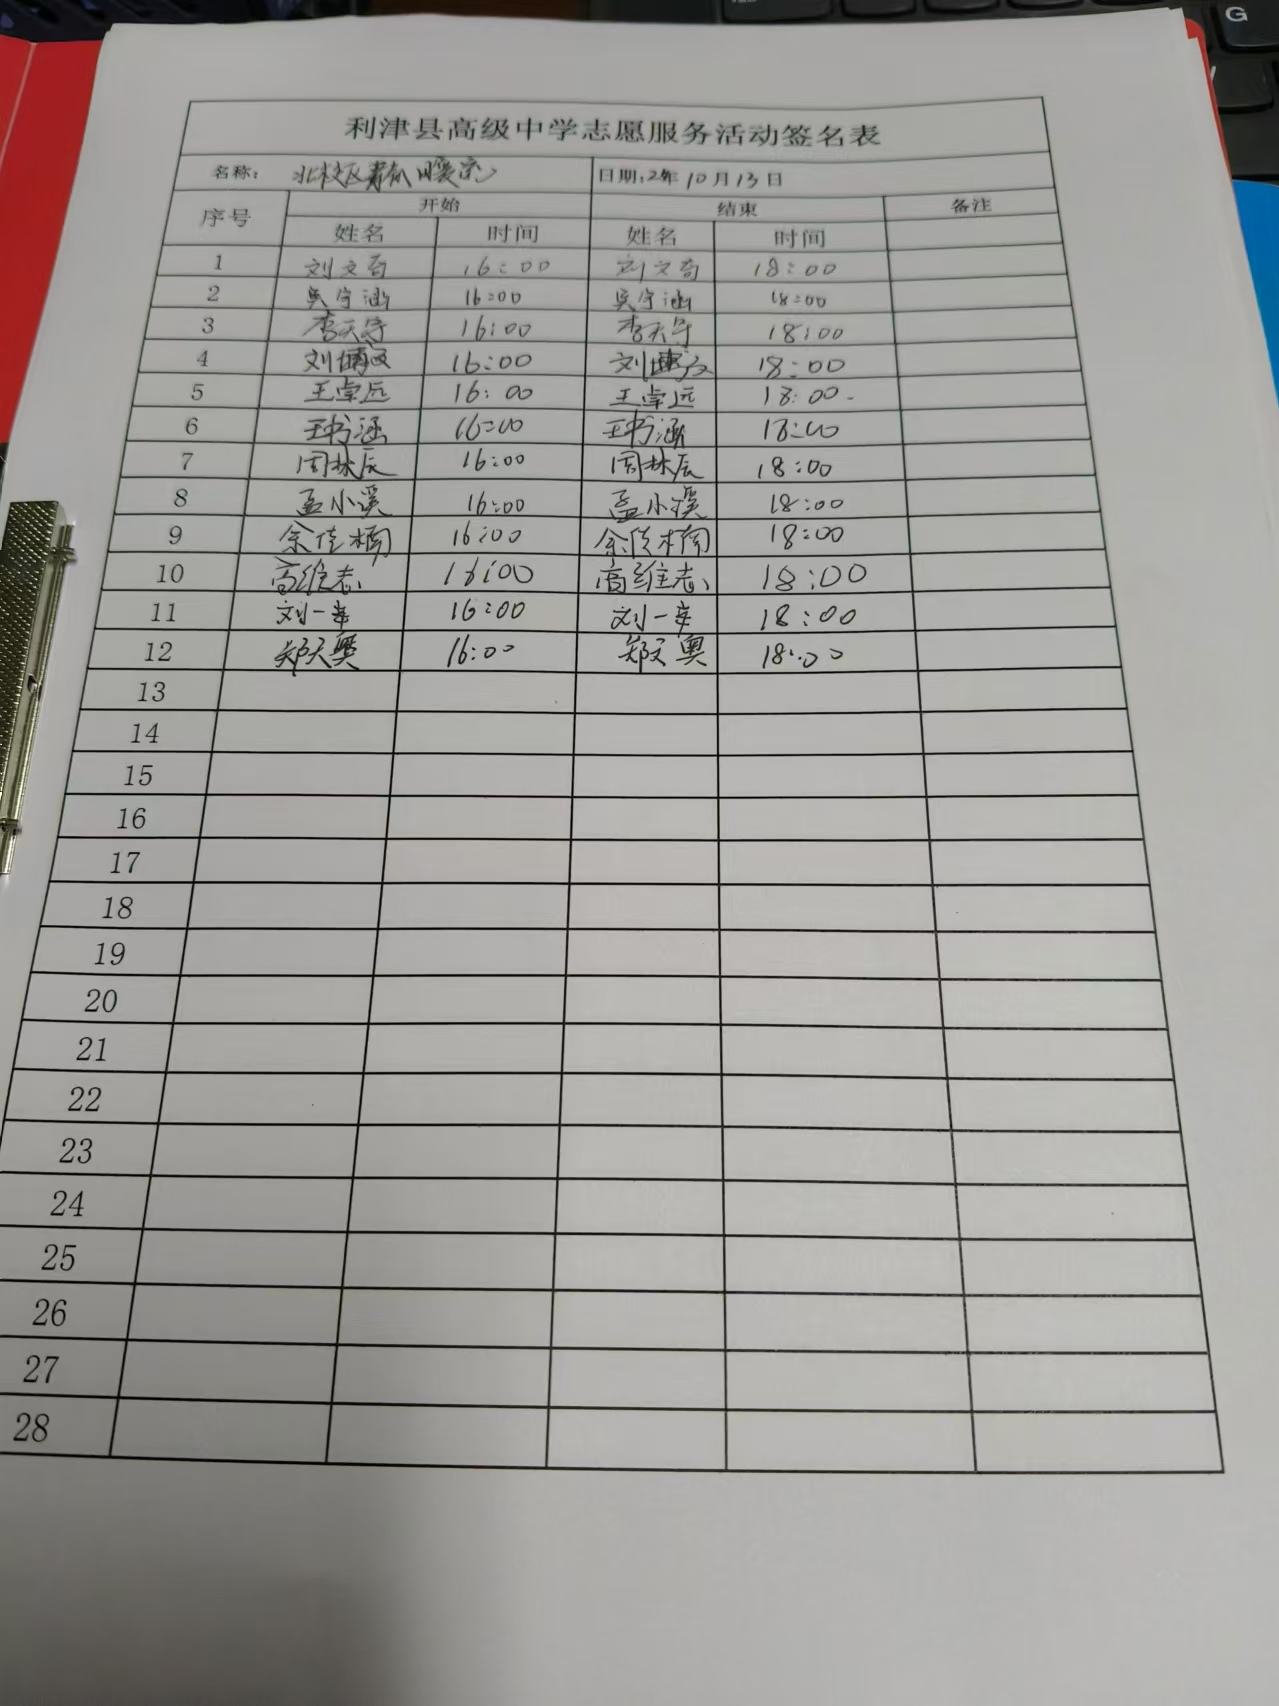 利津县高级中学志愿服务活动签名表
名称： 北校区 日期:24年10月13日
序号 开始 结束 备注
姓名 时间 姓名 时间
1 刘文奇 16:00 刘文奇 18:00
2 吴宇涵 16:00 吴宇涵 18:00
3 李天宇 16:00 李天宇 18:00
4 16:00 18:00
5 王卓远 16:00 王卓远 18:00
6 王书涵 16:00 王书涵 18:00
7 周林辰 16:00 周林辰 18:00
8 孟小溪 16:00 孟小溪 18:00
9 余佳楠 16:00 余佳楠 18:00
10 高维志 16:00 高维志 18:00
11 刘一辛 16:00 刘一辛 18:00
12 郑天奥 16:00 郑天奥 18:00
13
14
15
16
17
18
19
20
21
22
23
24
25
26
27
28
G